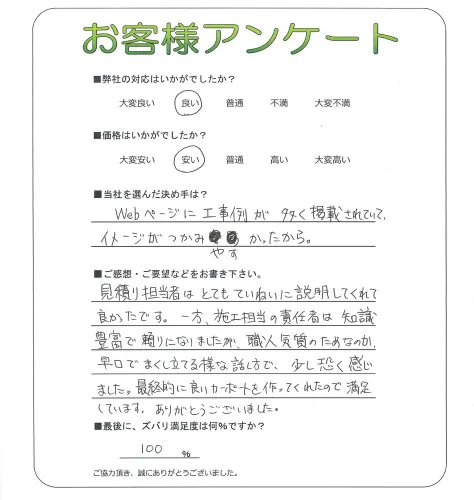 お客様アンケート
■弊社の対応はいかがでしたか？
大変良い 良い 普通 不満 大変不満
■価格はいかがでしたか？
大変安い 安い 普通 高い 大変高い
■当社を選んだ決め手は？
Webページに工事例が多く掲載されていて、
イメージがつかみやすかったから。
■ご感想・ご要望などをお書き下さい。
見積り担当者はとてもていねいに説明してくれて
良かったです。一方、施工担当の責任者は知識
豊富で頼りになりましたが、職人気質のためなのか、
早口でまくし立てる様な話し方で、少し恐く感じ
ました。最終的に良いカーポートを作ってくれたので満足
しています。ありがとうございました。
■最後に、ズバリ満足度は何%ですか？
100 %
ご協力頂き、誠にありがとうございました。